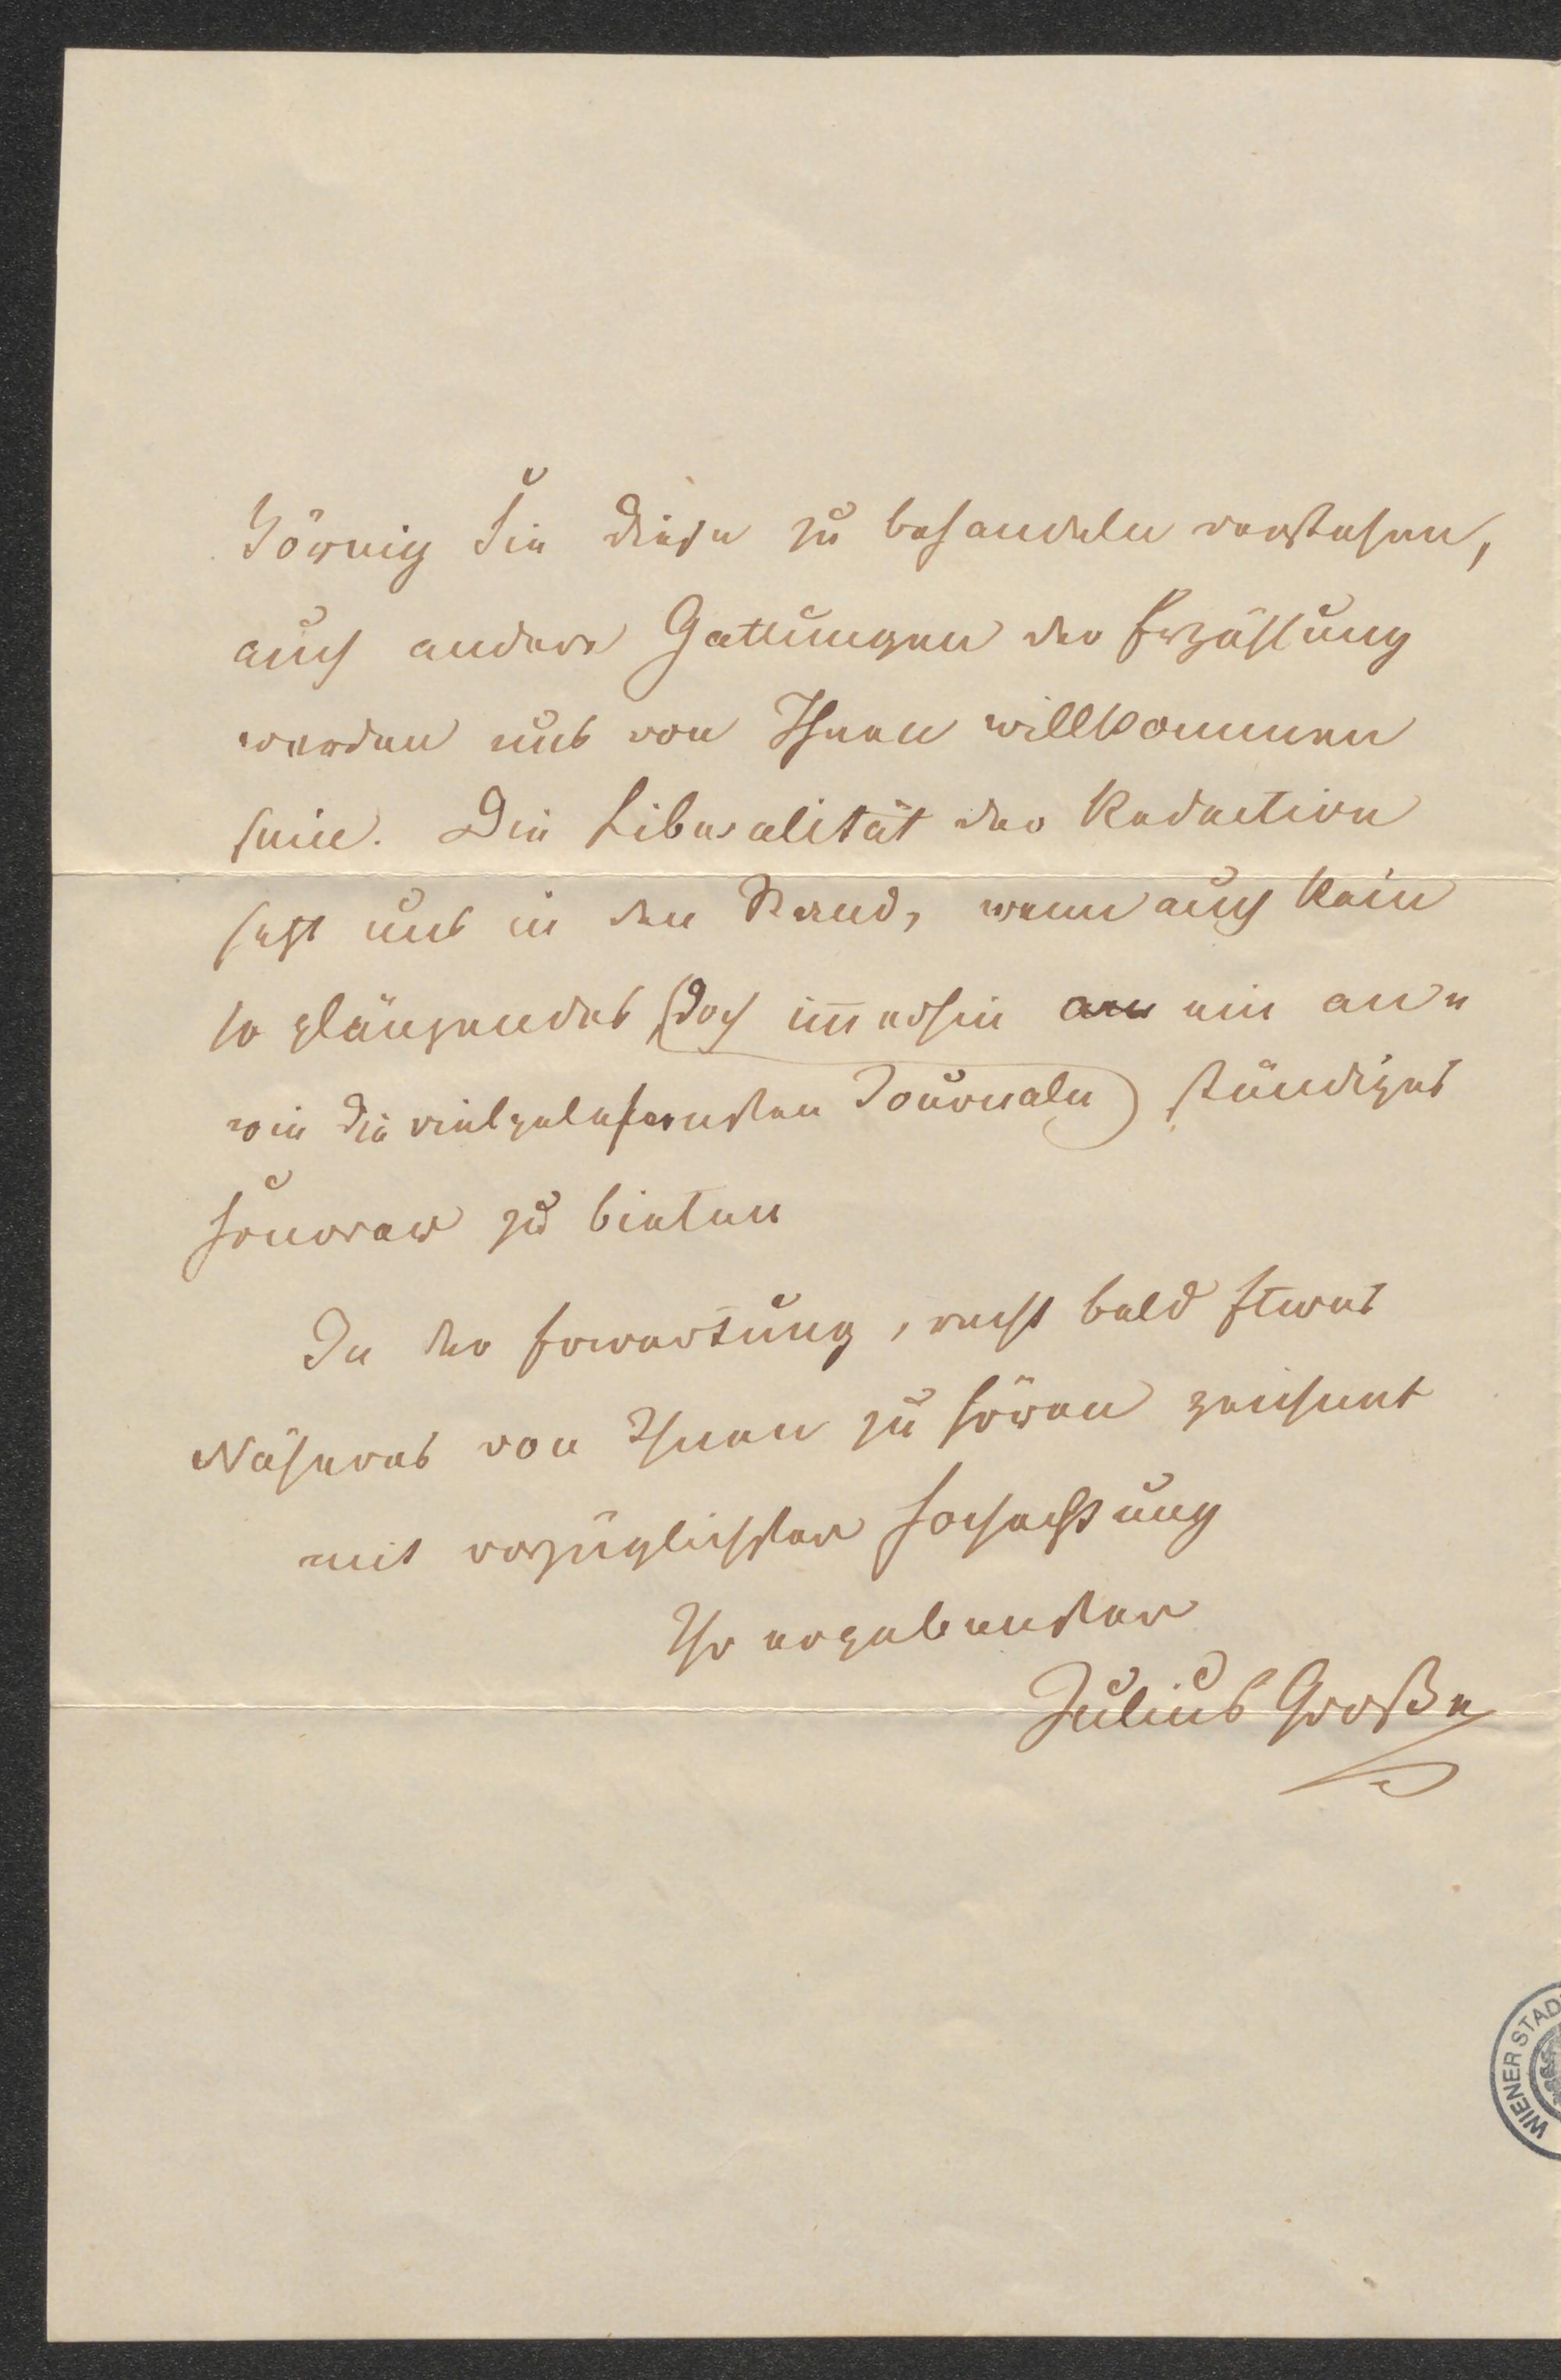 Sie diese zu behandeln verstehen,
auch andere Gattungen der Erzählung
werden uns von Ihnen willkommen
sein. Die Liberalität der Redaction
setzt uns in den Stand, wenn auch kein
so glänzendes doch immerhin ein an„
wie die vielgelesensten Journale) ständiges
Honorar zu bieten
In der Erwartung, recht bald Etwas
Näheres von Ihnen zu hören zeichnet
mit vorzüglichster Hochachtung
Ihr ergebenster
Julius Große
WIENER STAD